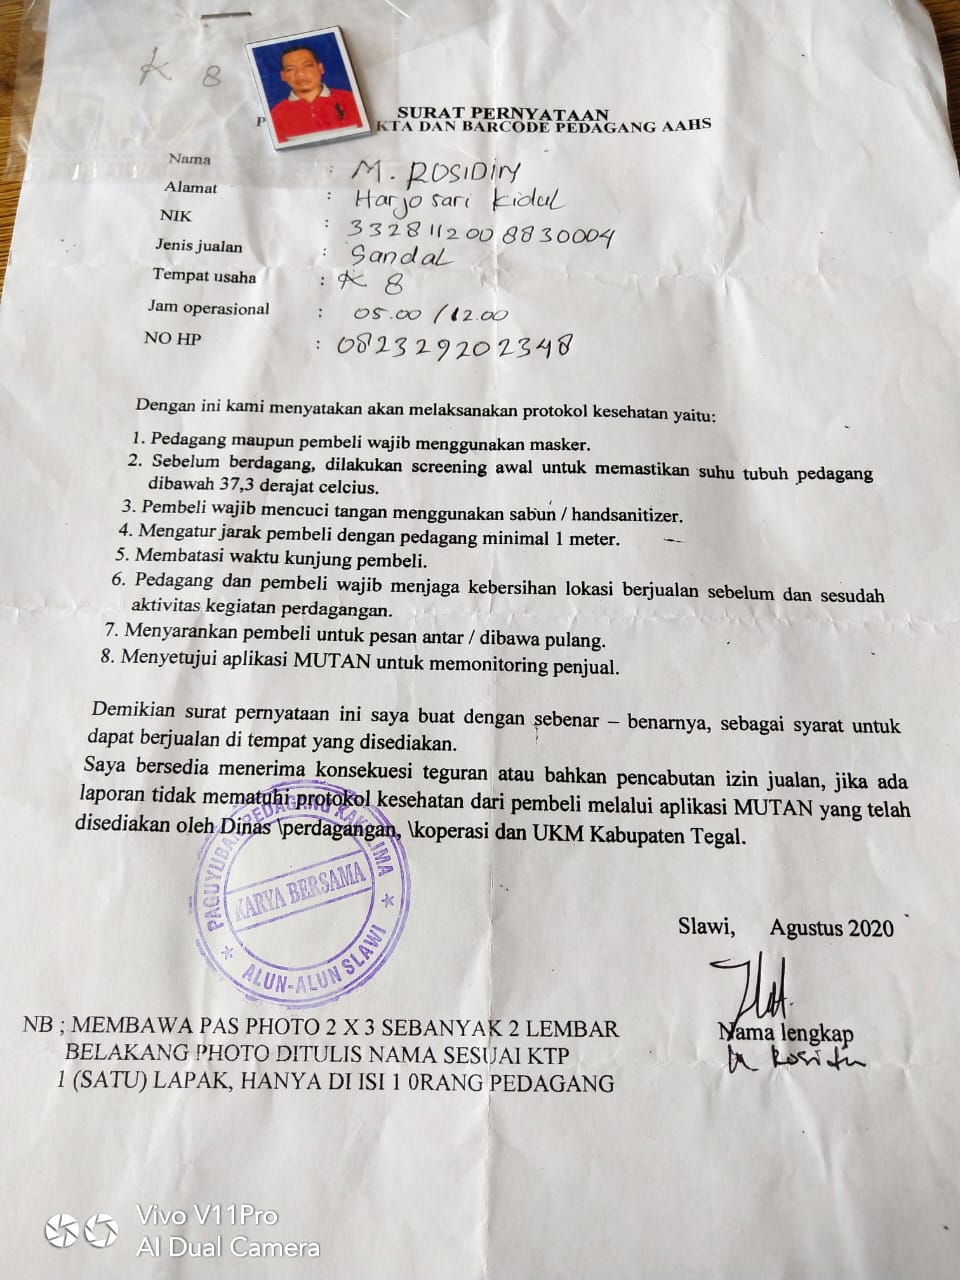 K 8
SURAT PERNYATAAN
KTA DAN BARCODE PEDAGANG AAHS
Nama : M. ROSIDIN
Alamat : Harjosari Kidul
NIK : 3328112008830004
Jenis jualan : Sandal
Tempat usaha : K 8
Jam operasional : 05.00 / 12.00
NO HP : 082329202348
Dengan ini kami menyatakan akan melaksanakan protokol kesehatan yaitu:
1. Pedagang maupun pembeli wajib menggunakan masker.
2. Sebelum berdagang, dilakukan screening awal untuk memastikan suhu tubuh pedagang
dibawah 37,3 derajat celcius.
3. Pembeli wajib mencuci tangan menggunakan sabun / handsanitizer.
4. Mengatur jarak pembeli dengan pedagang minimal 1 meter.
5. Membatasi waktu kunjung pembeli.
6. Pedagang dan pembeli wajib menjaga kebersihan lokasi berjualan sebelum dan sesudah
aktivitas kegiatan perdagangan.
7. Menyarankan pembeli untuk pesan antar / dibawa pulang.
8. Menyetujui aplikasi MUTAN untuk memonitoring penjual.
Demikian surat pernyataan ini saya buat dengan sebenar – benarnya, sebagai syarat untuk
dapat berjualan di tempat yang disediakan.
Saya bersedia menerima konsekuesi teguran atau bahkan pencabutan izin jualan, jika ada
laporan tidak mematuhi protokol kesehatan dari pembeli melalui aplikasi MUTAN yang telah
disediakan oleh Dinas \perdagangan, \koperasi dan UKM Kabupaten Tegal.
PAGUYUBAN PEDAGANG KAKI LIMA
KARYA BERSAMA
ALUN-ALUN SLAWI
Slawi, Agustus 2020
Nama lengkap
NB ; MEMBAWA PAS PHOTO 2 X 3 SEBANYAK 2 LEMBAR
BELAKANG PHOTO DITULIS NAMA SESUAI KTP
1 (SATU) LAPAK, HANYA DI ISI 1 0RANG PEDAGANG
Vivo V11Pro
AI Dual Camera